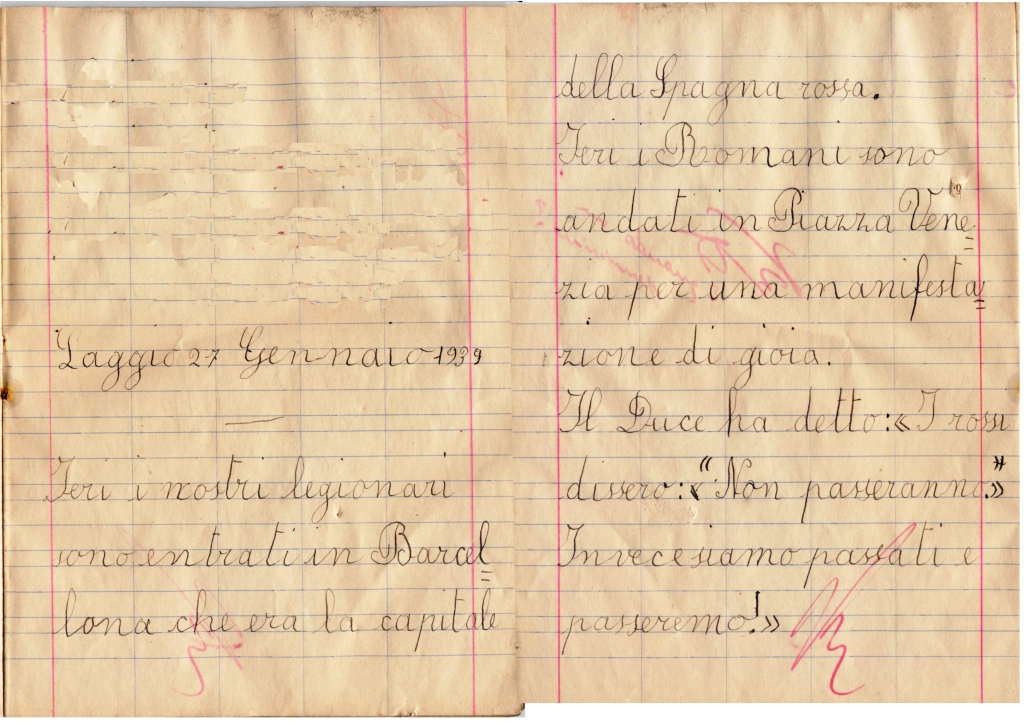 Laggio 27 Gennaio 1939
Ieri i nostri legionari
sono entrati in Barcel=
lona che era la capitale
della Spagna rossa.
Ieri i Romani sono
andati in Piazza Vene=
zia per una manifesta=
zione di gioia.
Il Duce ha detto: «I rossi
dissero: «“Non passeranno.”»
Invece siamo passati e
passeremo!»